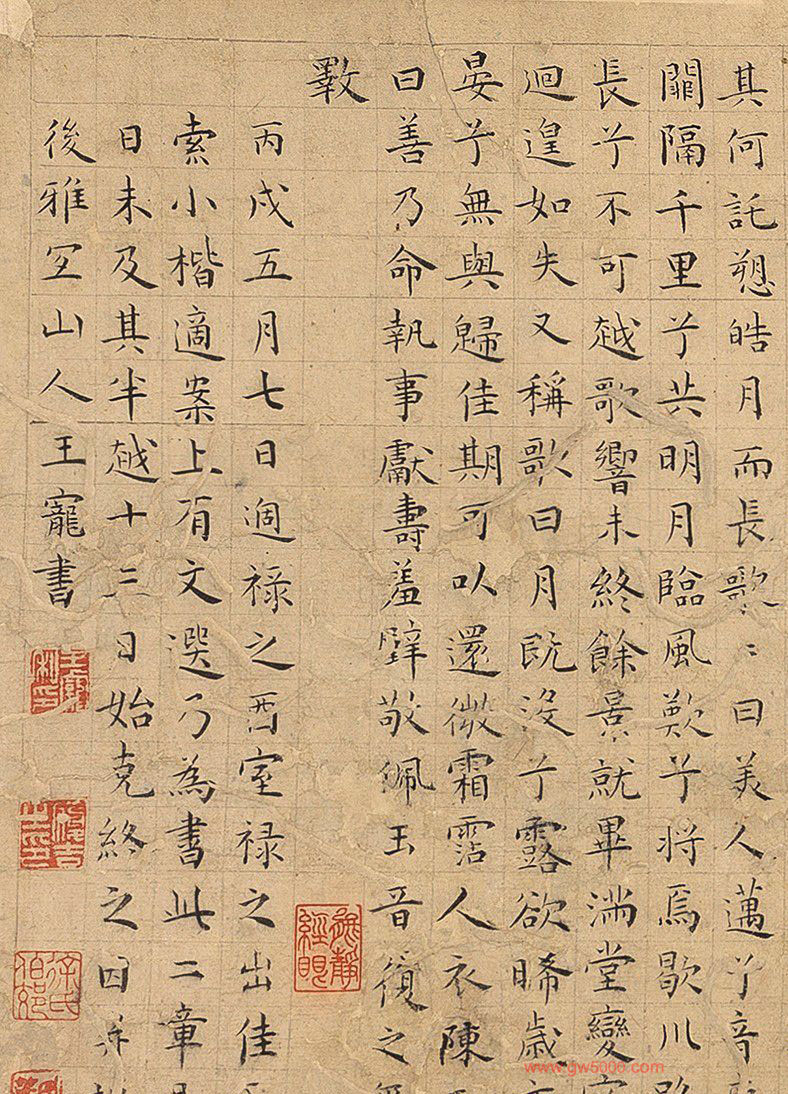 其何託愬皓月而長歌〻曰美人邁兮音
關隔千里兮共明月臨風歎兮將焉歇川路
長兮不可越歌響未終餘景就畢滿堂變容
迴遑如失又稱歌曰月既沒兮露欲晞歲
晏兮無與歸佳期可以還微霜霑人衣陳
曰善乃命執事獻壽羞璧敬佩玉音復之
斁
丙戌五月七日過祿之酉室祿之出佳
索小楷適案上有文選乃為書此二章
日未及其半越十三日始克終之因并
後雅宜山人王寵書
無靜
經眼
徐氏
伯郊
www.gw5000.com